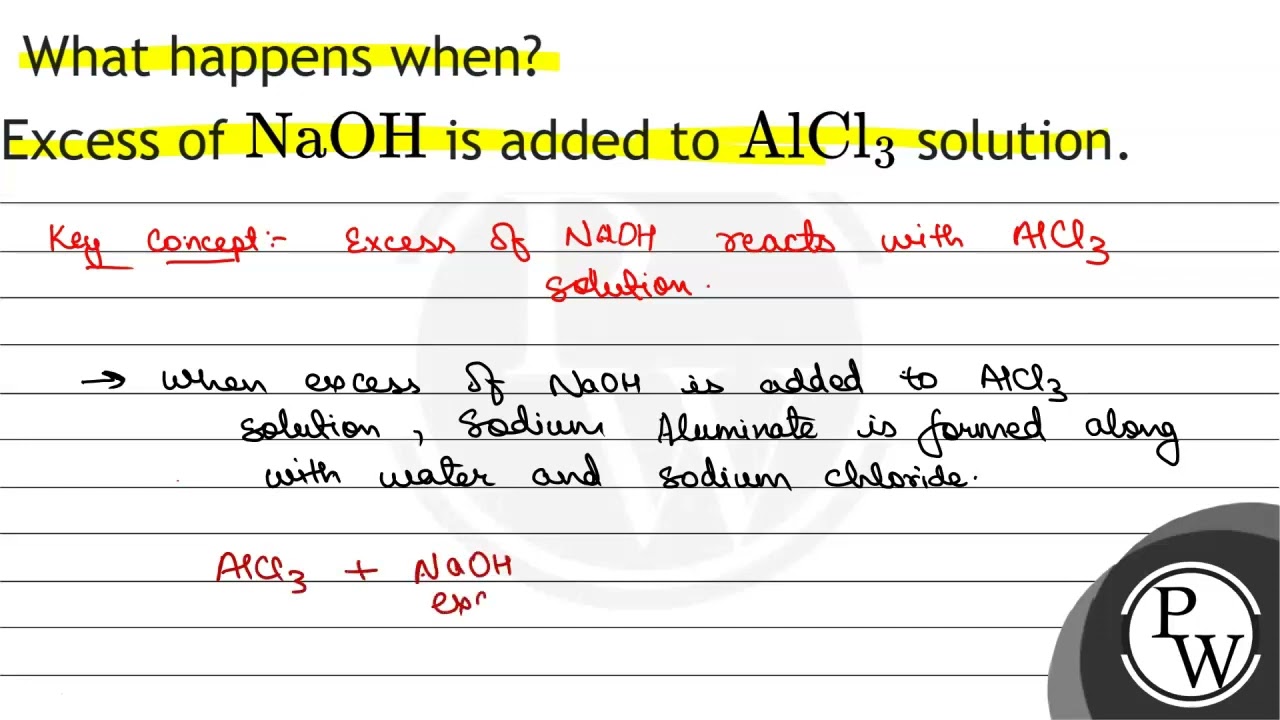 What happens when?
Excess of NaOH is added to AlCl₃ solution.
Key concept:- Excess of NaOH reacts with AlCl₃
solution.
→ When excess of NaOH is added to AlCl₃
solution, Sodium Aluminate is formed along
with water and sodium chloride.
AlCl₃ + NaOH
exc
P
W